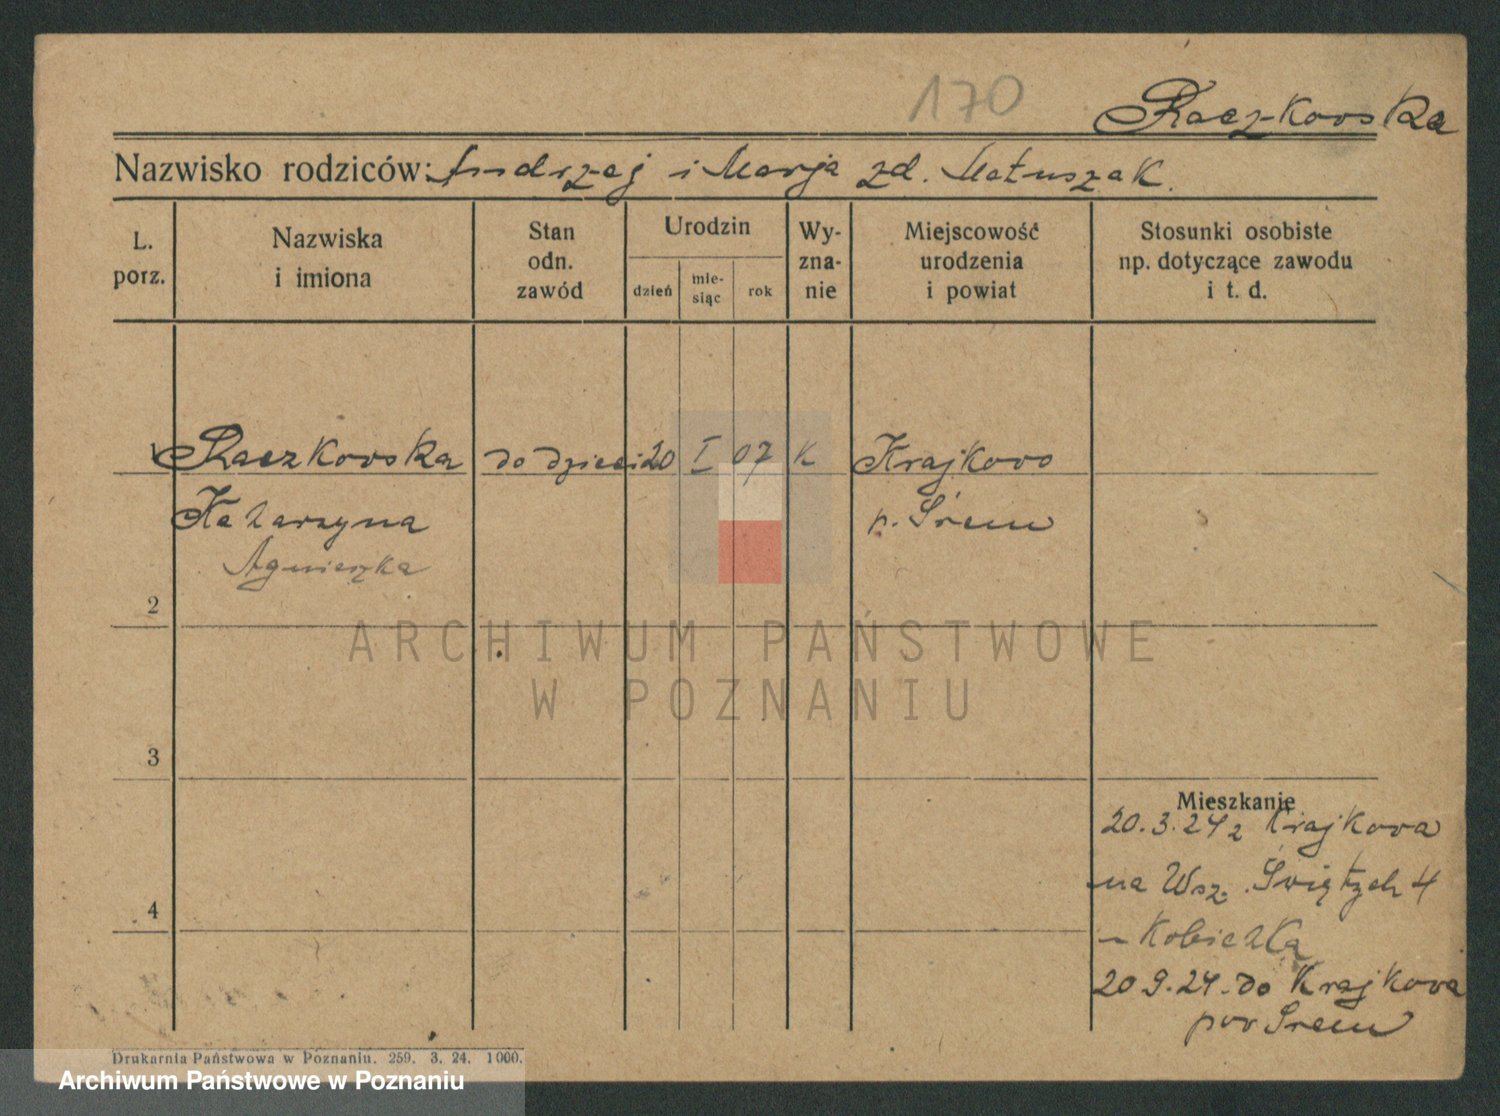 170
Raczkowska
Nazwisko rodziców: Andrzej i Marja zd. Matuszak.
L. porz.
Nazwiska i imiona
Stan odn. zawód
Urodzin
dzień
mie-
siąc
rok
Wy-
zna-
nie
Miejscowość urodzenia i powiat
Stosunki osobiste np. dotyczące zawodu i t. d.
1 Raczkowska do dzieci 20 I 07 K Krajkowo
Katarzyna p. Śrem
Agnieszka
2
3
4
Mieszkanie
20.3.24 z Krajkowa
na Wsz. Świętych 4
- Kobiezka
20 9.24. do Krajkowa
pow Śrem
Drukarnia Państwowa w Poznaniu. 259. 3. 24. 1000.
ARCHIWUM PAŃSTWOWE
W POZNANIU
Archiwum Państwowe w Poznaniu